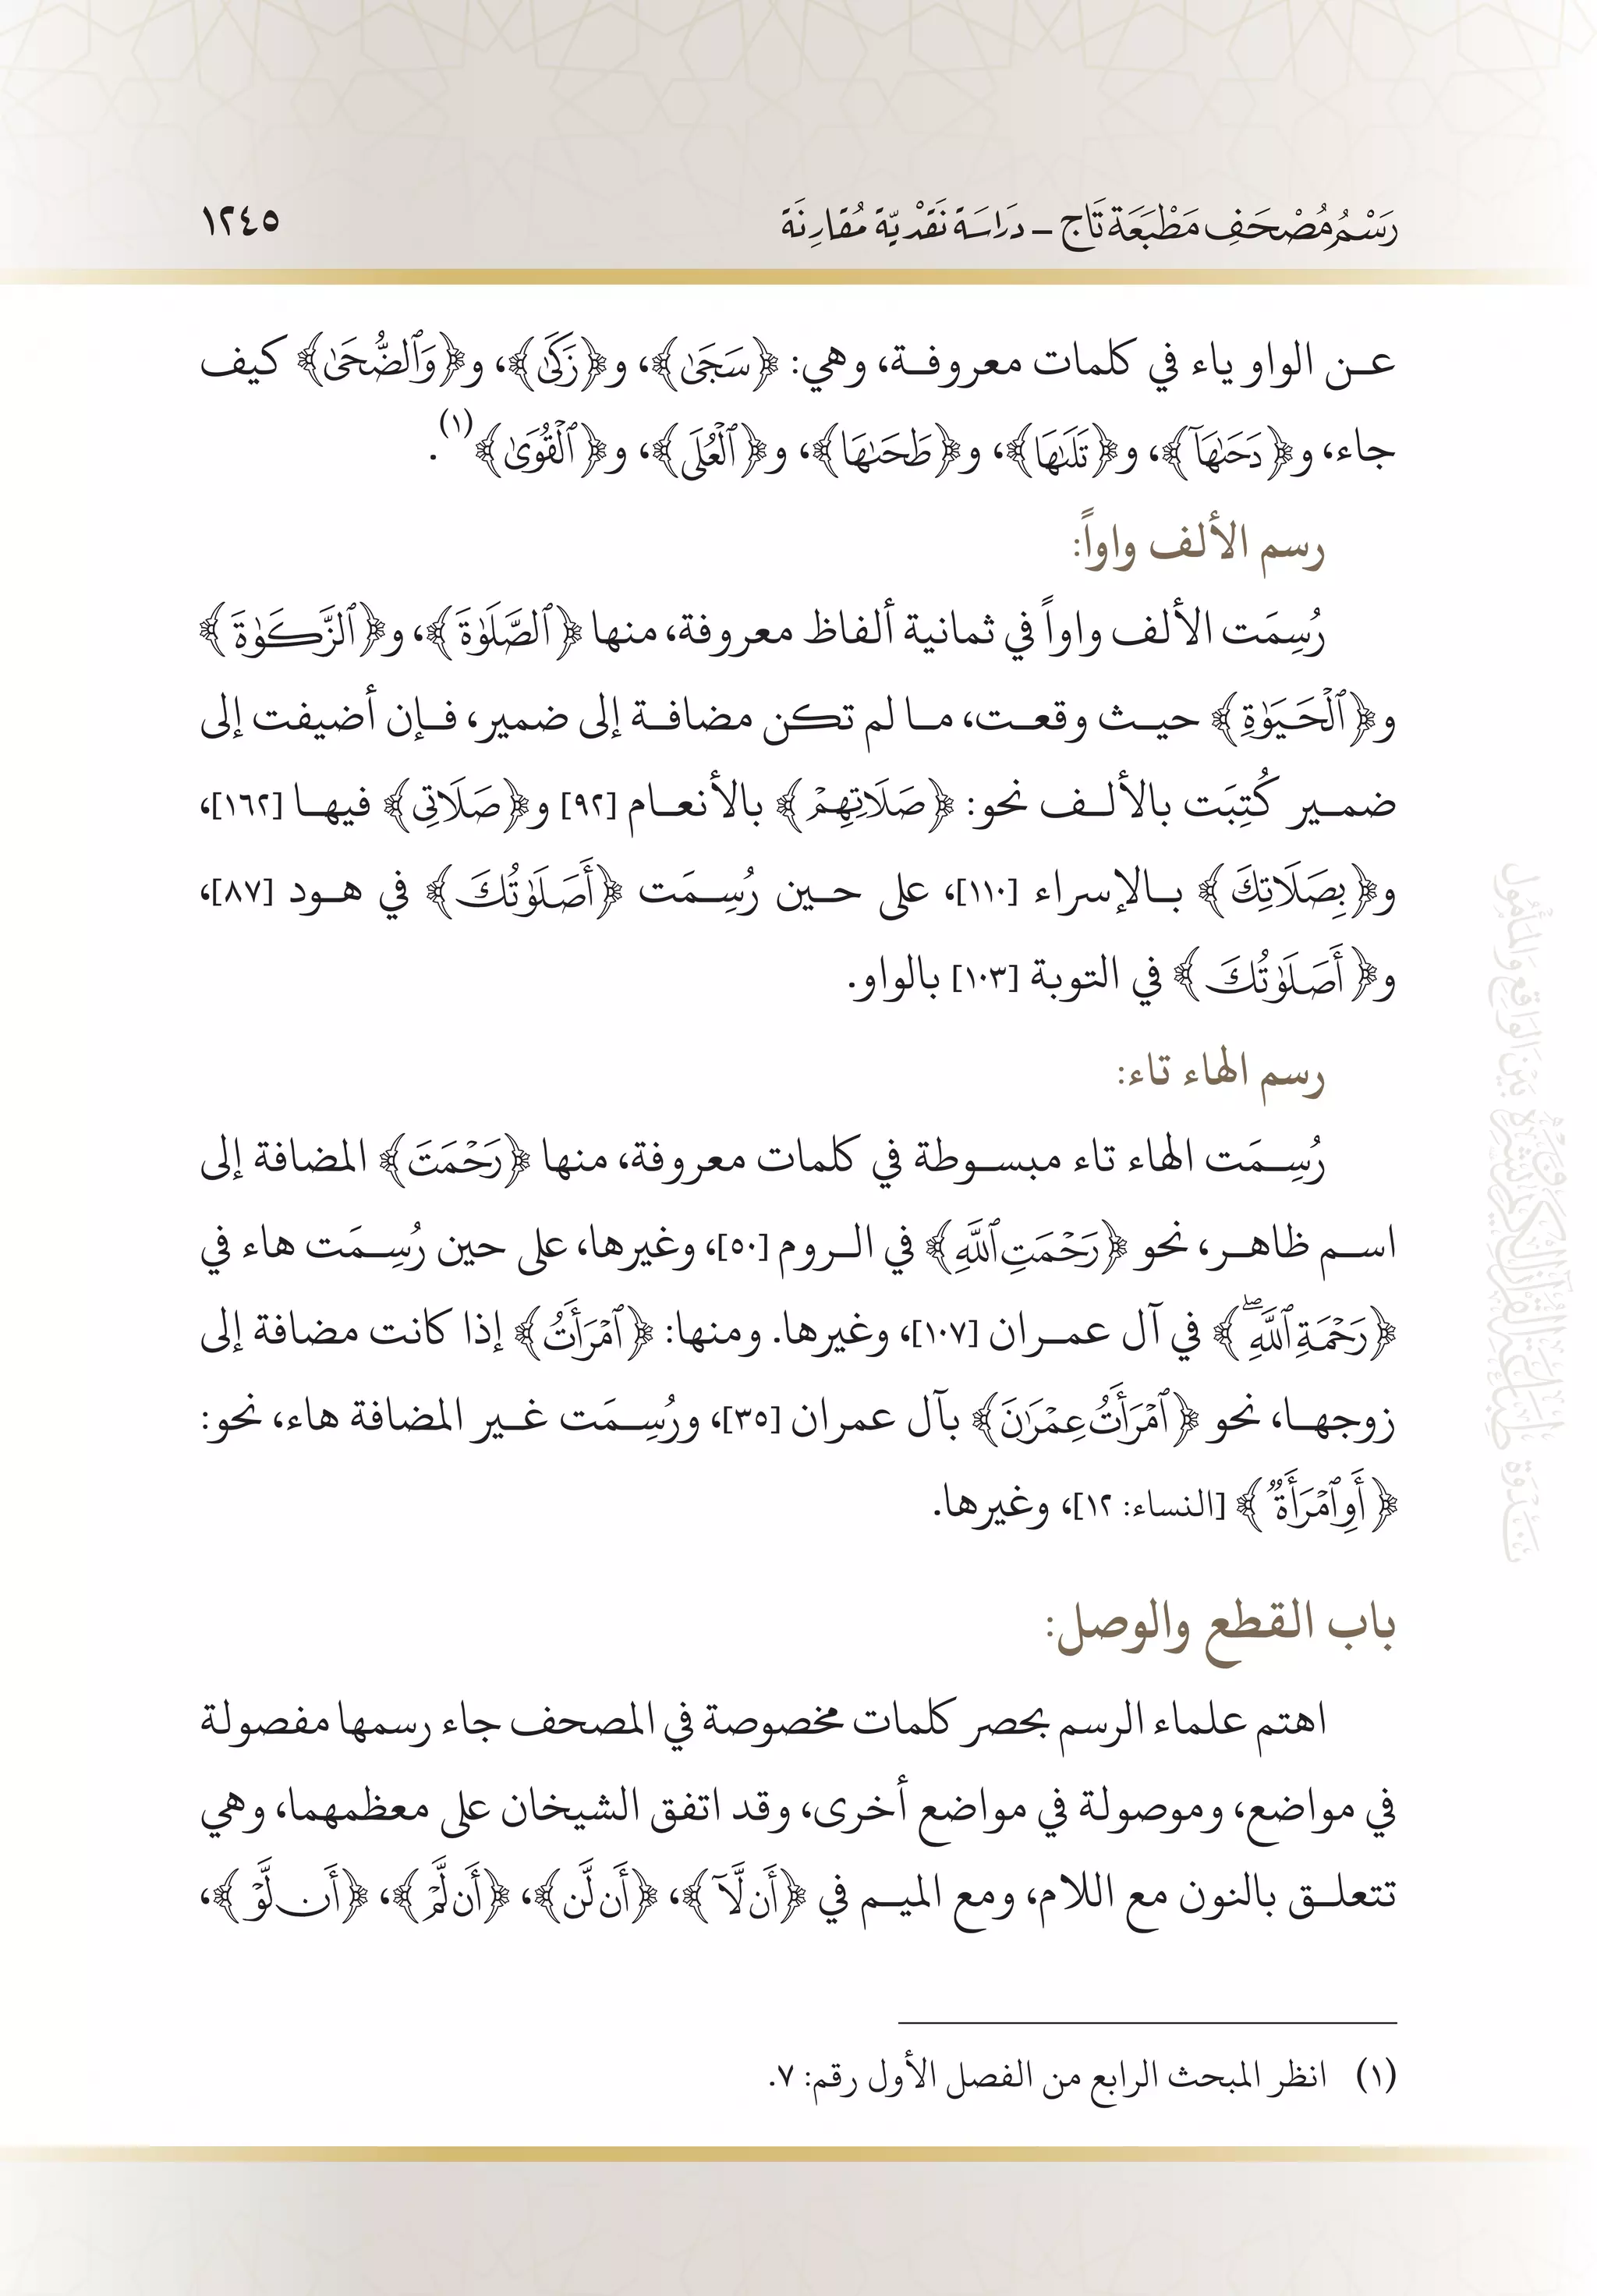 رَسْمُ مُصْحَفِ مَطْبَعَة تَاج - دَرَاسَةً نَقْدِيَّةً مُقَارِنَةً
١٢٤٥
عن الواو ياء في كلمات معروفة، وهي: ﴿سَجَىٰ﴾، و﴿زَكَىٰ﴾، و﴿وَٱلضُّحَىٰ﴾ كيف
جاء، و﴿دَحَىٰهَآ﴾، و﴿تَلَىٰهَا﴾، و﴿طَحَىٰهَا﴾، و﴿ٱلْعُلَى﴾، و﴿ٱلْقُوَىٰ﴾(١).
رسم الألف واواً:
رُسِمَت الألف واواً في ثمانية ألفاظ معروفة، منها ﴿ٱلصَّلَوٰةَ﴾، و﴿ٱلزَّكَوٰةَ﴾
و﴿ٱلْحَيَوٰةِ﴾ حيث وقعت، ما لم تكن مضافة إلى ضمير، فإن أضيفت إلى
ضمير كُتِبَت بالألف نحو: ﴿صَلَاتِهِمْ﴾ بالأنعام [٩٢] و﴿صَلَاتِي﴾ فيها [١٦٢]،
و﴿بِصَلَاتِكَ﴾ بالإسراء [١١٠]، على حين رُسِمَت ﴿أَصَلَوٰتُكَ﴾ في هود [٨٧]،
و﴿أَصَلَوٰتُكَ﴾ في التوبة [١٠٣] بالواو.
رسم الهاء تاء:
رُسِمَت الهاء تاء مبسوطة في كلمات معروفة، منها ﴿رَحْمَتَ﴾ المضافة إلى
اسم ظاهر، نحو ﴿رَحْمَتِ ٱللَّهِ﴾ في الروم [٥٠]، وغيرها، على حين رُسِمَت هاء في
﴿رَحْمَةِ ٱللَّهِۖ﴾ في آل عمران [١٠٧]، وغيرها. ومنها: ﴿ٱمْرَأَتُ﴾ إذا كانت مضافة إلى
زوجها، نحو ﴿ٱمْرَأَتُ عِمْرَٰنَ﴾ بآل عمران [٣٥]، ورُسِمَت غير المضافة هاء، نحو:
﴿أَوِ ٱمْرَأَةٌ﴾ [النساء: ١٢]، وغيرها.
باب القطع والوصل:
اهتم علماء الرسم بحصر كلمات مخصوصة في المصحف جاء رسمها مفصولة
في مواضع، وموصولة في مواضع أخرى، وقد اتفق الشيخان على معظمهما، وهي
تتعلق بالنون مع اللام، ومع الميم في ﴿أَن لَّآ﴾، ﴿أَن لَّن﴾، ﴿أَن لَّمْ﴾، ﴿أَن لَّوْ﴾،
(١) انظر المبحث الرابع من الفصل الأول رقم: ٧.
نَدْوَةُ طِبَاعَةِ القُرْآنِ الكَرِيمِ وَنَشْرِهِ بَيْنَ الوَاقِعِ وَالمَأْمُولِ